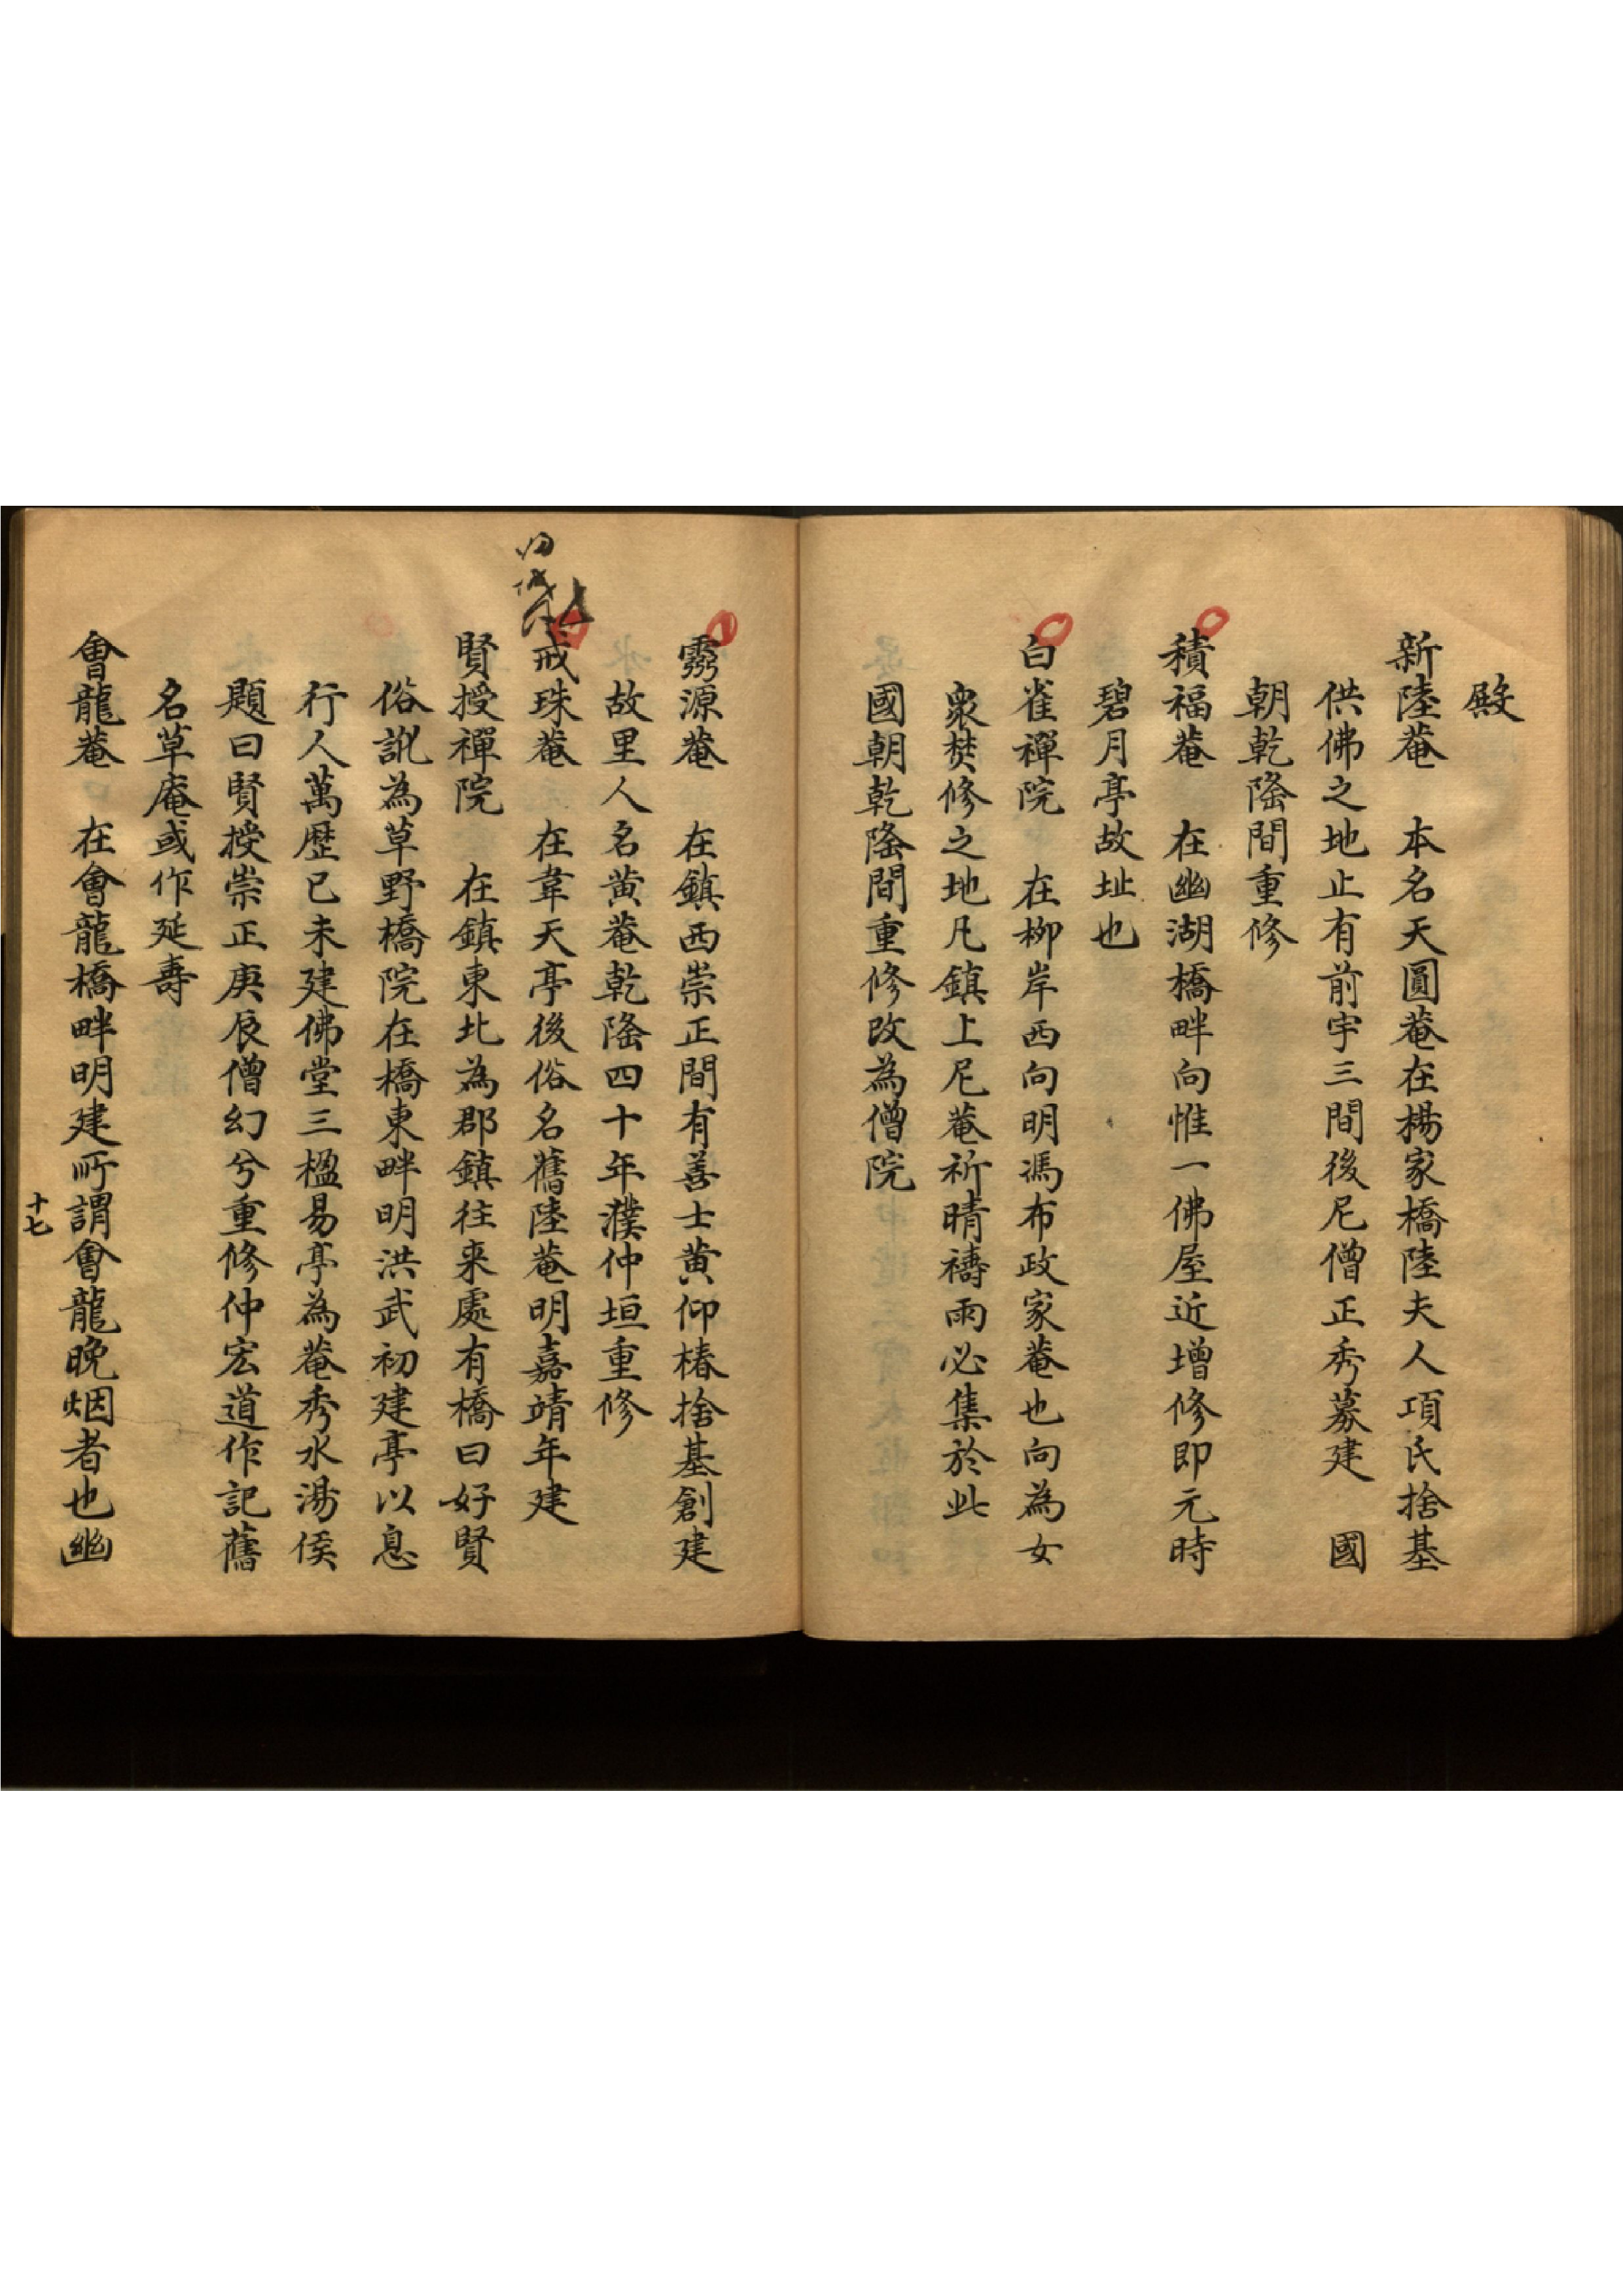 殿
新陸菴　本名天圓菴在楊家橋陸夫人項氏捨基
供佛之地止有前宇三間後尼僧正秀募建　國
朝乾隆間重修
積福菴　在幽湖橋畔向惟一佛屋近增修即元時
碧月亭故址也
白雀禪院　在柳岸西向明馮布政家菴也向為女
衆焚修之地凡鎮上尼菴祈晴禱雨必集於此
國朝乾隆間重修改為僧院
源菴　在鎮西崇正間有善士黄仰椿捨基創建
故里人名黄菴乾隆四十年濮仲垣重修
戒珠菴　在韋天亭後俗名舊陸菴明嘉靖年建
賢授禪院　在鎮東北為郡鎮往来處有橋曰好賢
俗訛為草野橋院在橋東畔明洪武初建亭以息
行人萬歷已未建佛堂三楹易亭為菴秀水湯侯
題曰賢授崇正庚辰僧幻兮重修仲宏道作記舊
名草庵或作延壽
會龍菴　在會龍橋畔明建所謂會龍晚烟者也幽
十七